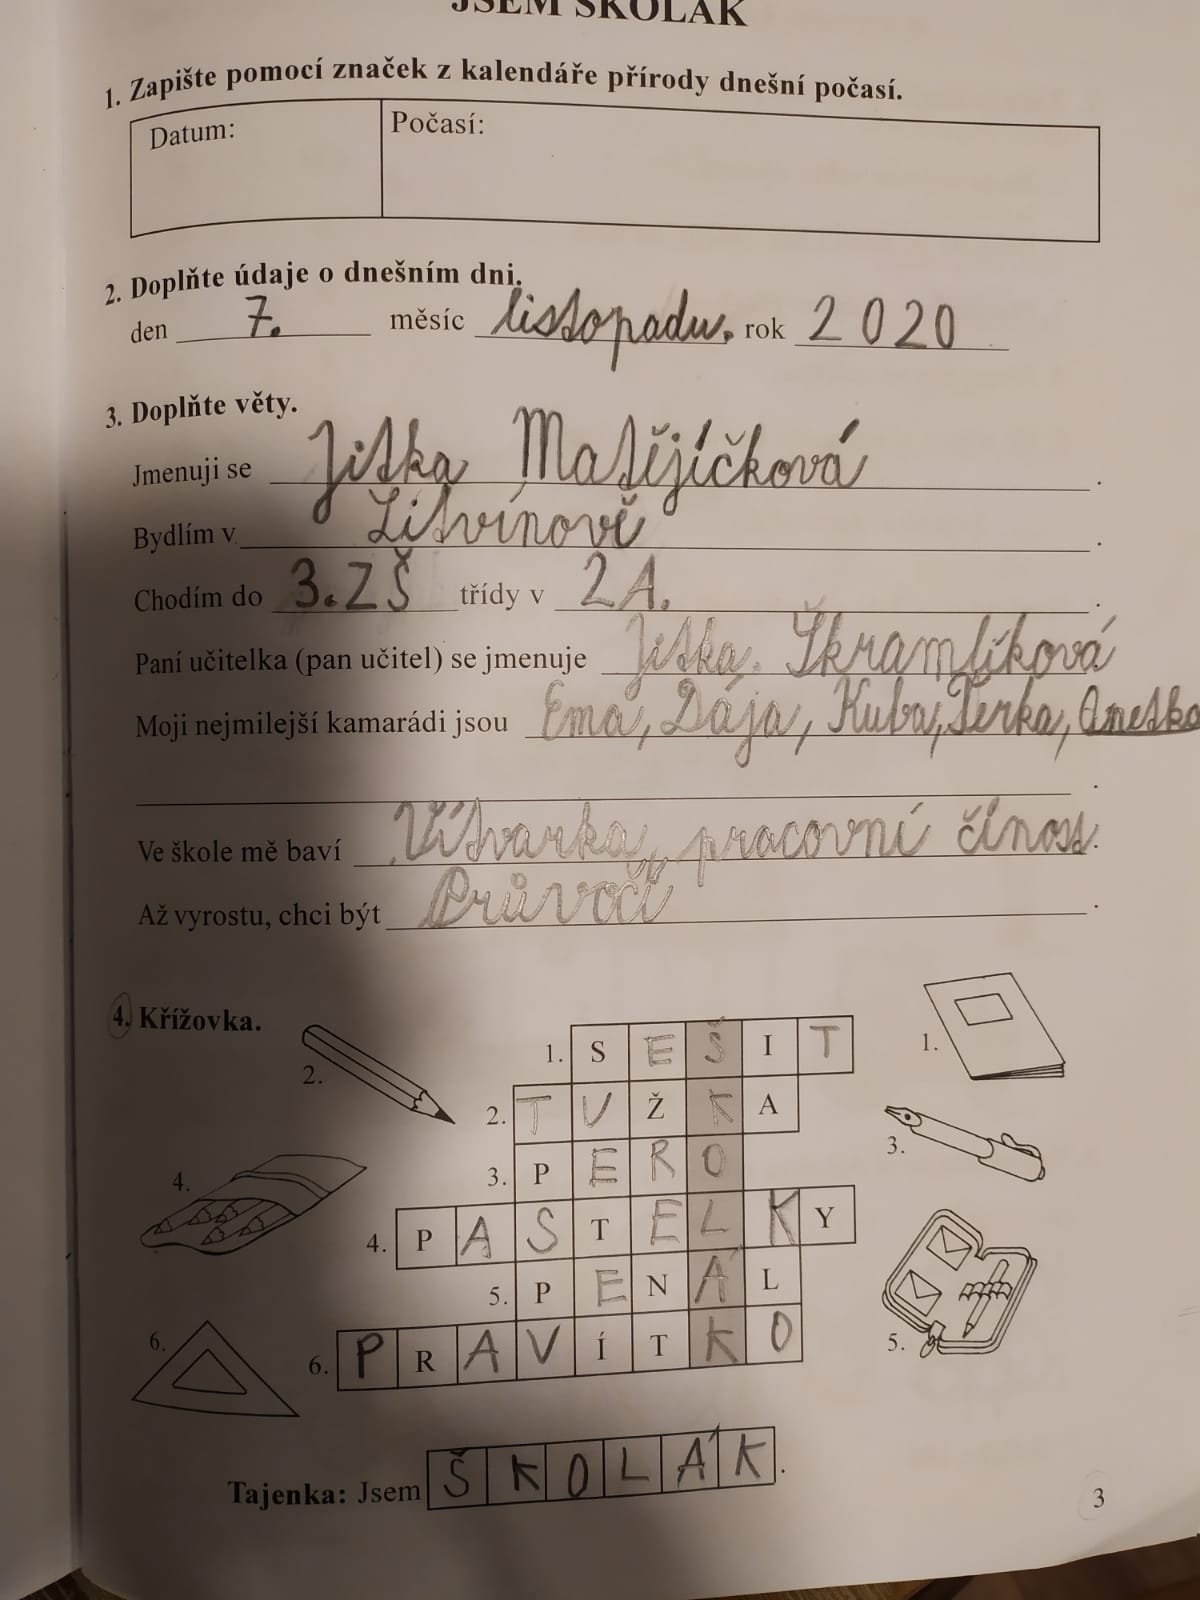 JSEM ŠKOLÁK
1. Zapište pomocí značek z kalendáře přírody dnešní počasí.
Datum: Počasí:
2. Doplňte údaje o dnešním dni.
den 7. měsíc listopadu. rok 2020
3. Doplňte věty.
Jmenuji se Jitka Matějíčková.
Bydlím v Litvínově.
Chodím do 3.ZŠ třídy v 2A..
Paní učitelka (pan učitel) se jmenuje Jitka. Škramlíková
Moji nejmilejší kamarádi jsou Ema, Dája, Kuba, Terka, Anetka
.
Ve škole mě baví Vítvarka, pracovní čínost.
Až vyrostu, chci být Průvočí.
4. Křížovka.
1. S E Š I T 1.
2.
2. T U Ž K A
3. P E R O 3.
4.
4. P A S T E L K Y
5. P E N Á L
6. 6. P R A V Í T K O 5.
Tajenka: Jsem Š K O L Á K.
3